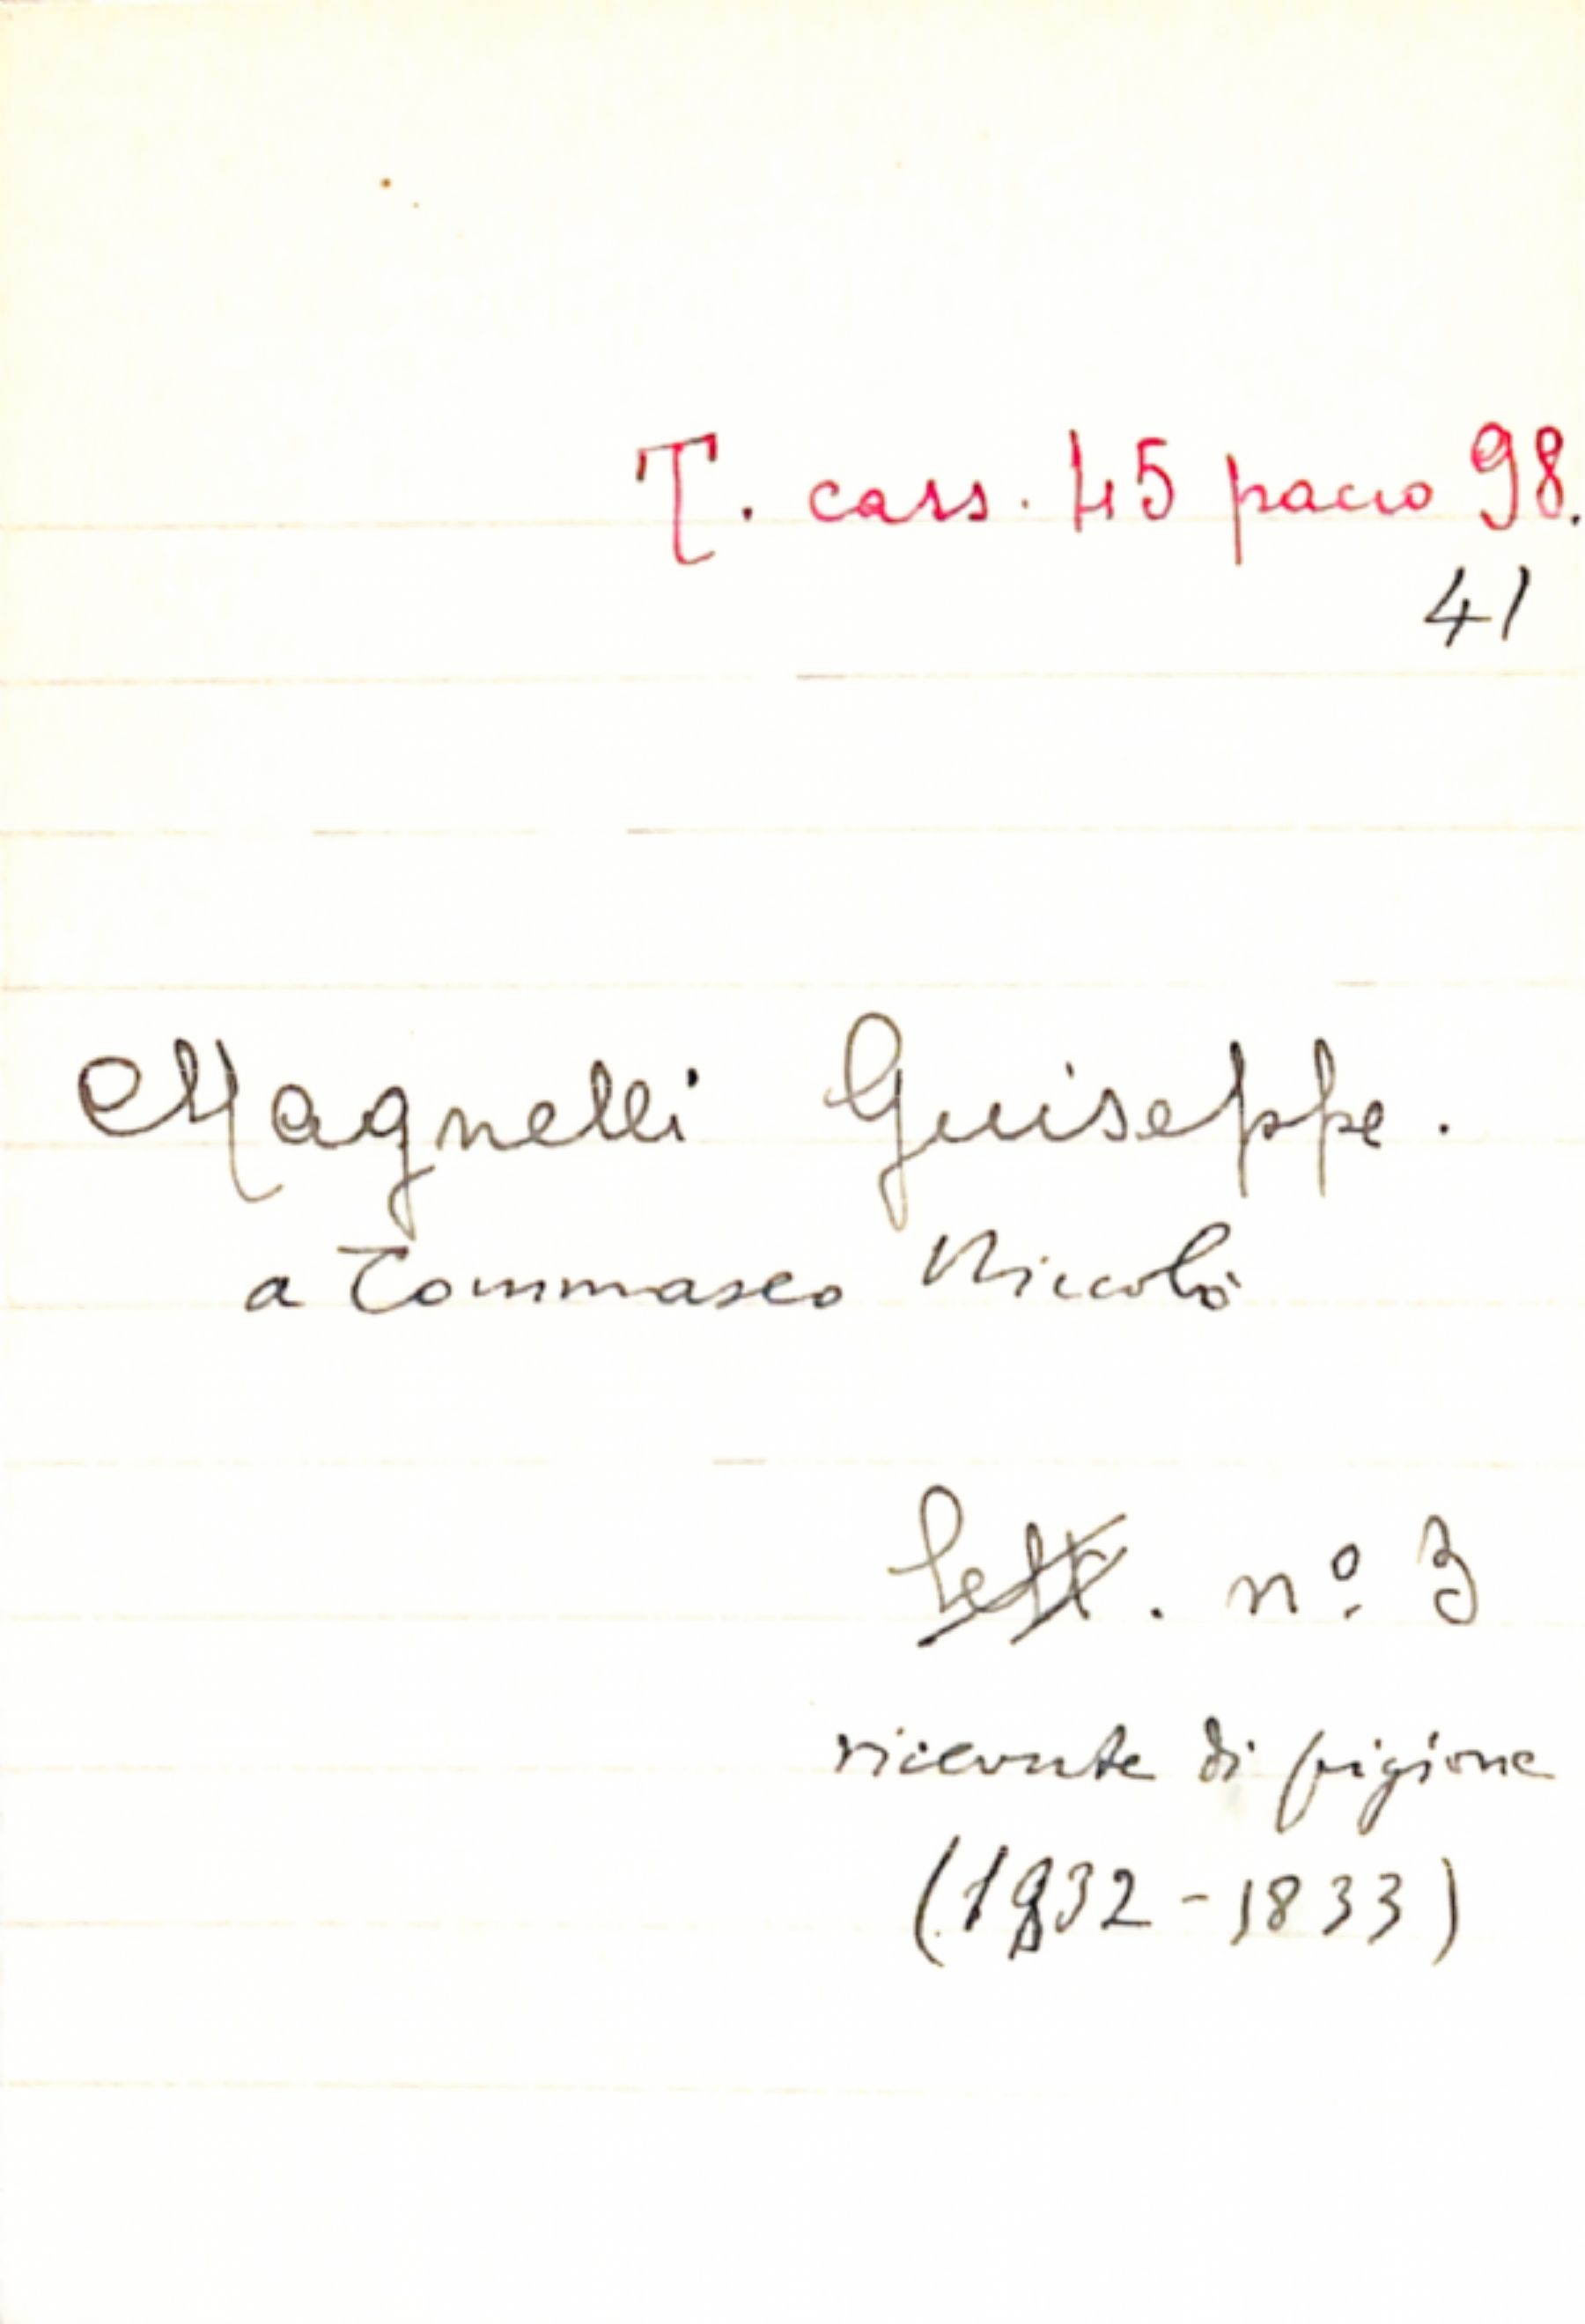 T. cass. 45 pacco 98.
41
Magnelli Giuseppe.
a Tommaseo Niccolò
n.º 3
ricevute di pigione
(1832-1833)